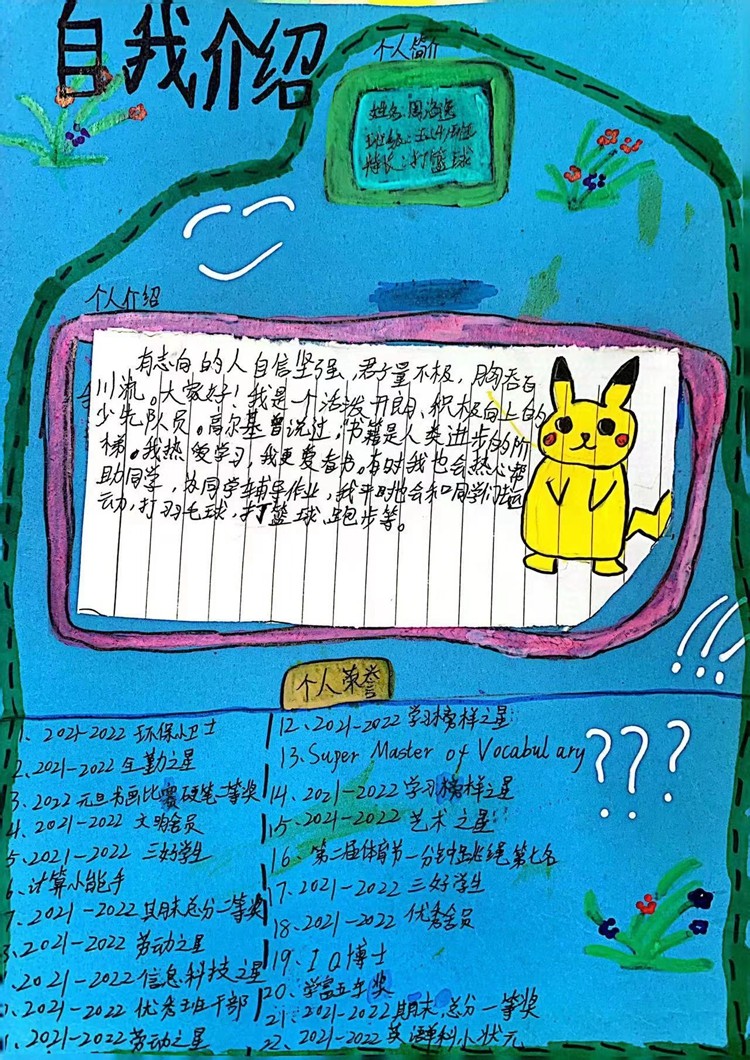 自我介绍
个人简介
姓名:周海逸
班级:五(4)班
特长:打篮球
个人介绍
有志向的人自信坚强,君子量不极,胸吞百
川流。大家好!我是一个活泼开朗,积极向上的
少先队员。高尔基曾说过,书籍是人类进步的阶
梯。我热爱学习,我更爱看书。有时我也会热心帮
助同学,为同学辅导作业,我平时也会和同学们去运
动,打羽毛球,打篮球,跑步等。
个人荣誉
1、2021-2022 环保小卫士
2、2021-2022 全勤之星
3、2022 元旦书画比赛硬笔二等奖
4、2021-2022 文明舍员
5、2021-2022 三好学生
6、计算小能手
7、2021-2022 其末总分二等奖
2021-2022 劳动之星
2021-2022 信息科技之星
2021-2022 优秀班干部
1、2021-2022 劳动之星
12、2021-2022 学习榜样之星
13、Super Master of Vocabulary
14、2021-2022 学习榜样之星
15、2021-2022 艺术之星
16、第二届体育节一分钟跳绳第七名
17、2021-2022 三好学生
18、2021-2022 优秀舍员
19、IQ博士
20、学富五车奖
21、2021-2022 期末总分一等奖
22、2021-2022 英语单科小状元
!!!
???